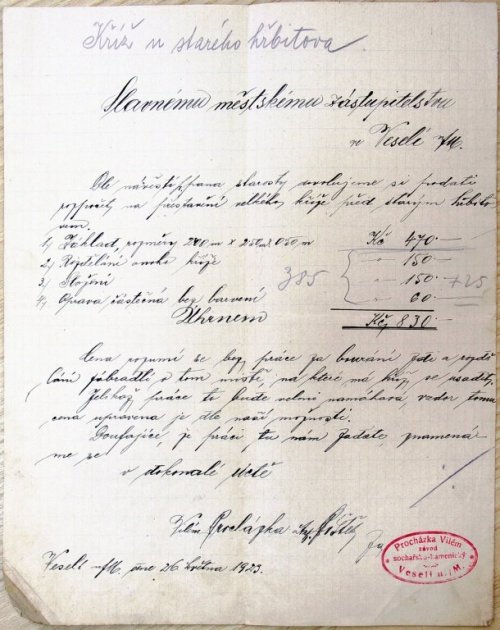 Kříž u starého hřbitova.
Slavnému městskému zastupitelstvu
ve Veselí n/M.
Dle návěští pana starosty dovolujeme si podati
rozpočty na přestavění velkého kříže před starým hřbito-
vem.
1) Základ, rozměry 200 m x 250 m 050 m Kč 470.—
2) Rozdělání onoho kříže " 150.—
3) Složení " 150.— +25
4) Oprava částečná bez barvení " 60.—
385
Uhrnem Kč 830.—
Cena rozumí se bez práce za bourání zdi a rozdě-
lání zábradlí o tom místě, na které má kříž se usaditi,
Jelikož práce to bude velmi namáhavá, vzdor tomu
cena upravena je dle naší možnosti.
Doufajíce, že práci tu nám zadáte, znamená-
me se
v dokonalé úctě
Vilém Procházka
Procházka Vilém
závod
sochařsko-kamenický
Veselí n. M.
Veselí n/M. dne 26 května 1923.